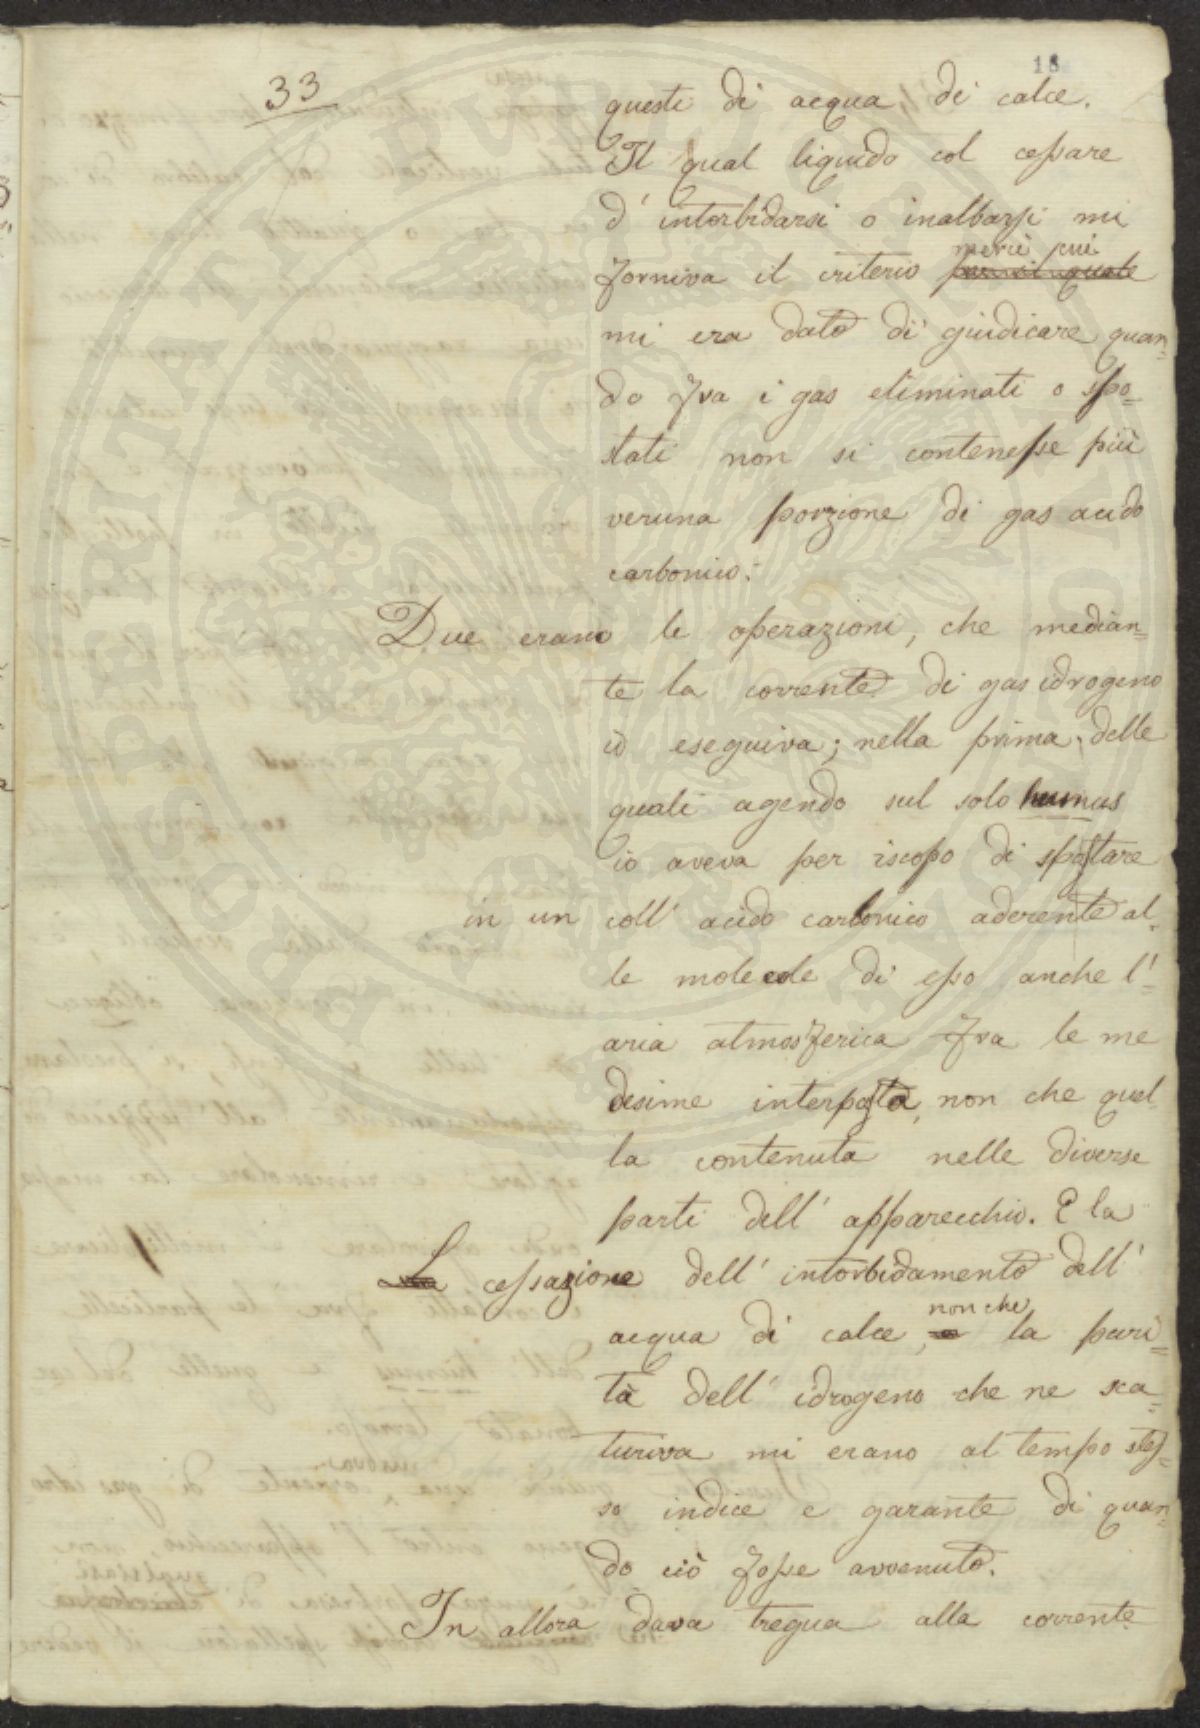 33
18
questi di acqua di calce.
Il qual liquido col cessare
d' intorbidarsi o inalbarsi mi
mercè cui
forniva il criterio per il quale
mi era dato di giudicare quan=
do fra i gas eliminati o spo=
stati non si contenesse più
veruna porzione di gas acido
carbonico.
Due erano le operazioni, che median=
te la corrente di gas idrogeno
io eseguiva; nella prima delle
quali agendo sul solo humus
io aveva per iscopo di spostare
in un coll' acido carbonico aderente al=
le molecole di esso anche l'=
aria atmosferica fra le me
desime interposta, non che quel
la contenuta nelle diverse
parti dell' apparecchio. E la
La cessazione dell' intorbidamento dell'
non che
acqua di calce, e la puri=
tà dell' idrogeno che ne sca=
turiva mi erano al tempo stes=
so indice e garante di quan=
do ciò fosse avvenuto.
In allora dava tregua alla corrente